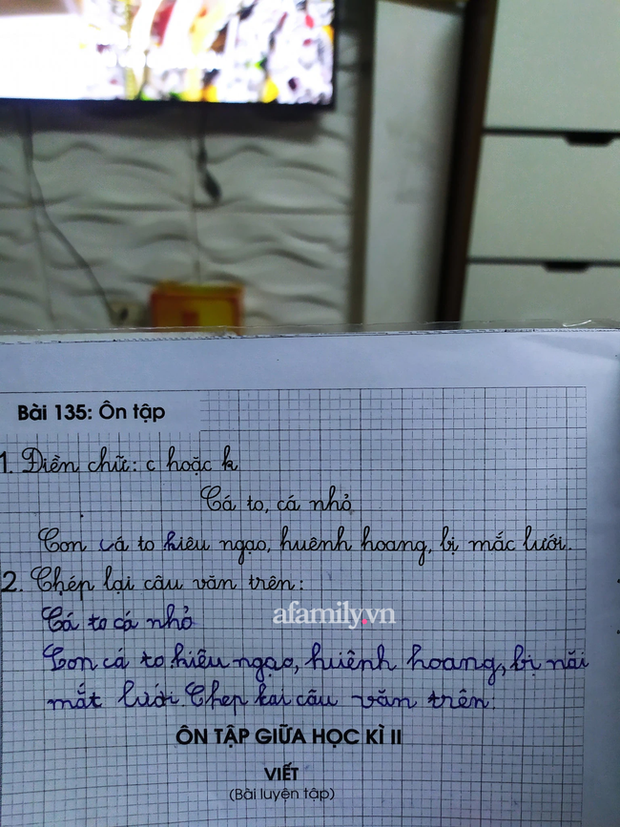 Bài 135: Ôn tập
1. Điền chữ: c hoặc k
Cá to, cá nhỏ
Con cá to kiêu ngạo, huênh hoang, bị mắc lưới.
2. Chép lại câu văn trên:
Cá to cá nhỏ
afamily.vn
Con cá to kiêu ngạo, huênh hoang, bị nãi
mắt lưới Chep kai câu văn trên.
ÔN TẬP GIỮA HỌC KÌ II
VIẾT
(Bài luyện tập)